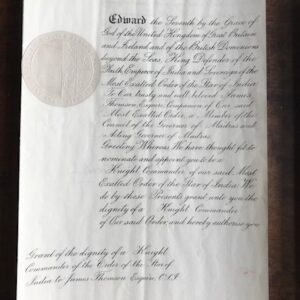 Edward the Seventh by the Grace of
God of the United Kingdom of Great Britain
and Ireland and of the British Dominions
beyond the Seas, King Defender of the
Faith Emperor of India and Sovereign of the
Most Exalted Order of the Star of India
To Our trusty and well beloved James
Thomson, Esquire, Companion of Our said
Most Exalted Order, a Member of the
Council of the Governor of Madras and
Acting Governor of Madras
Greeting Whereas We have thought fit to
nominate and appoint you to be a
Knight Commander of our said Most
Exalted Order of the Star of India We
do by these Presents grant unto you the
dignity of a Knight Commander
of Our said Order and hereby authorise you
Grant of the dignity of a Knight
Commander of the Order of the Star of
India to James Thomson Esquire, C.S.I